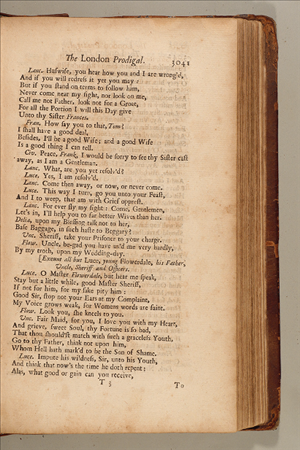 The London Prodigal. 3041
Lanc. Huswife, you hear how you and I are wrong'd,
And if you will redress it yet you may:
But if you stand on terms to follow him,
Never come near my sight, nor look on me,
Call me not Father, look not for a Groat,
For all the Portion I will this Day give
Unto thy Sister Frances.
Fran. How say you to that, Tom?
I shall have a good deal,
Besides, I'll be a good Wife; and a good Wife
Is a good thing I can tell.
Civ. Peace, Frank, I would be sorry to see thy Sister cast
away, as I am a Gentleman.
Lanc. What, are you yet resolv'd?
Luce. Yes, I am resolv'd.
Lanc. Come then away, or now, or never come.
Luce. This way I turn, go you unto your Feast,
And I to weep, that am with Grief opprest.
Lanc. For ever fly my sight: Come, Gentlemen,
Let's in, I'll help you to far better Wives than her.
Delia, upon my Blessing talk not to her,
Base Baggage, in such haste to Beggary!
Unc. Sheriff, take your Prisoner to your charge.
Flow. Uncle, be-god you have us'd me very hardly,
By my troth, upon my Wedding-day.
[Exeunt all but Luce, young Flowerdale, his Father,
Uncle, Sheriff and Officers.
Luce. O Master Flowerdale, but hear me speak,
Stay but a little while, good Master Sheriff,
If not for him, for my sake pity him:
Good Sir, stop not your Ears at my Complaint,
My Voice grows weak, for Womens words are faint.
Flow. Look you, she kneels to you.
Unc. Fair Maid, for you, I love you with my Heart,
And grieve, sweet Soul, thy Fortune is so bad,
That thou should'st match with such a graceless Youth.
Go to thy Father, think not upon him,
Whom Hell hath mark'd to be the Son of Shame.
Luce. Impute his wildness, Sir, unto his Youth,
And think that now's the time he doth repent:
Alas, what good or gain can you receive,
T 5 To